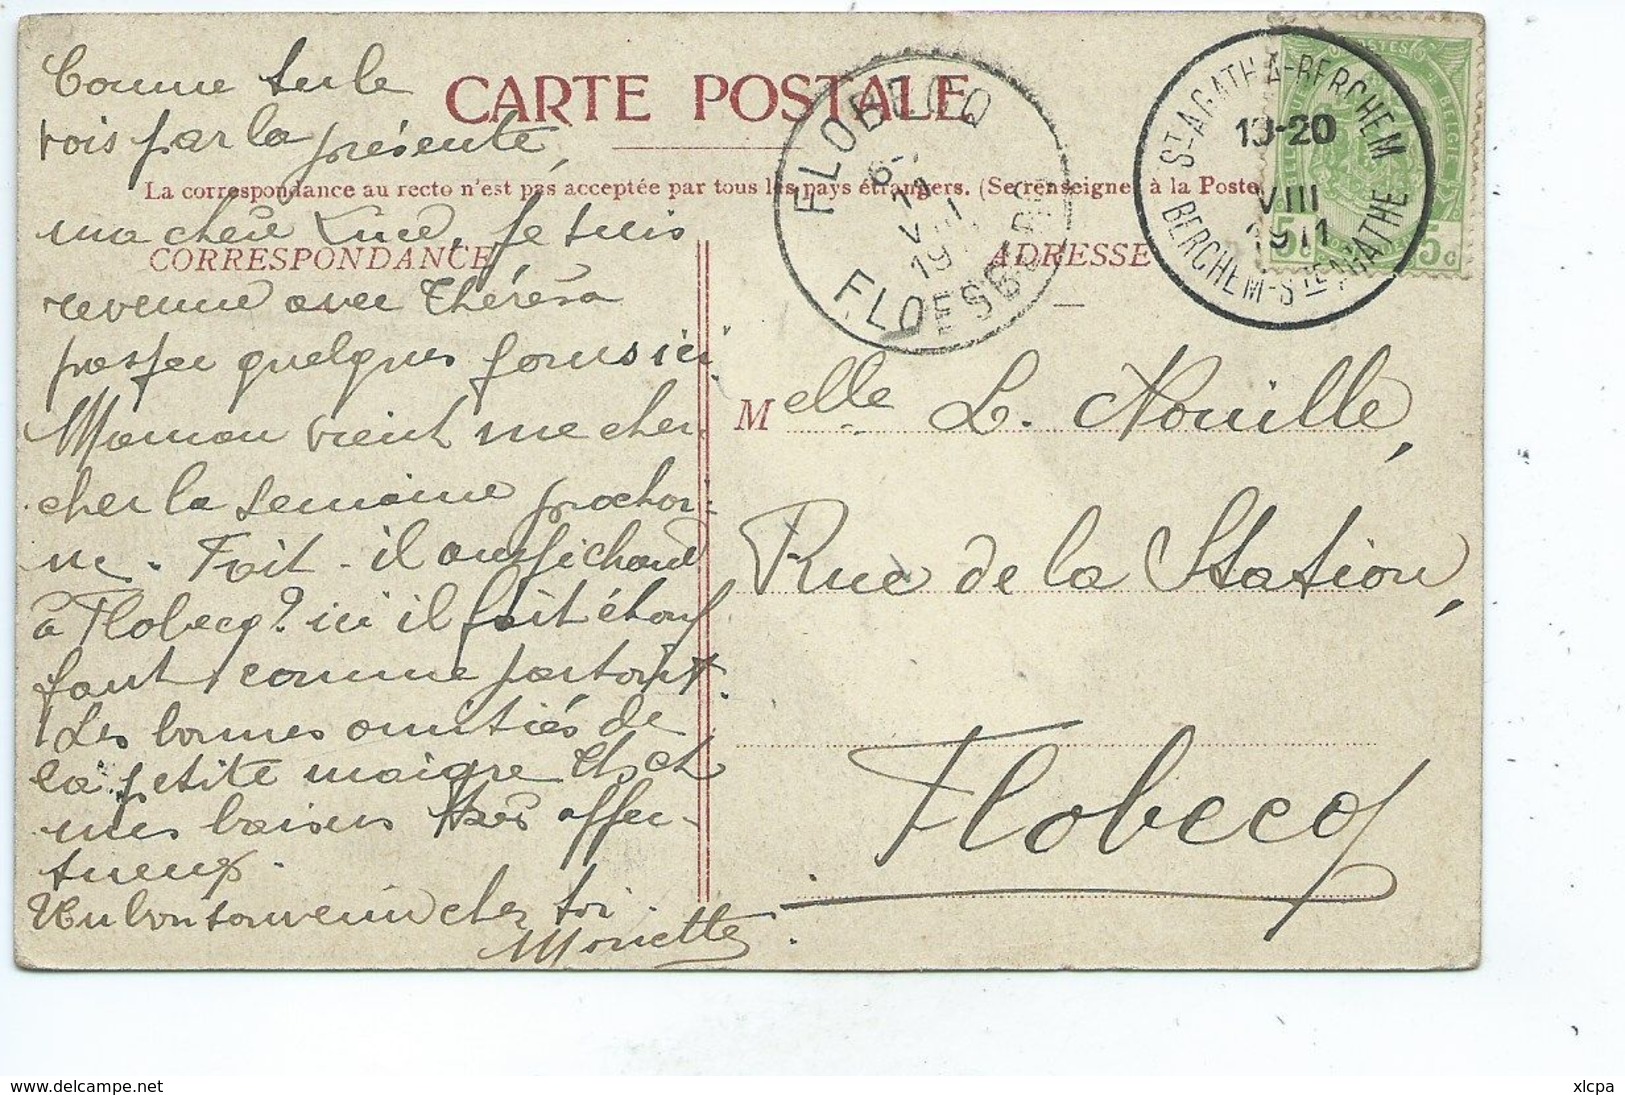 CARTE POSTALE
La correspondance au recto n'est pas acceptée par tous les pays étrangers. (Se renseigner à la Poste
CORRESPONDANCE
ADRESSE
Comme tu le
vois par la présente,
ma chère Luce, je suis
revenue avec Thérésa
passer quelques jours ici.
Maman vient me cher
cher la semaine prochai-
ne. Fait-il aussi chaud
à Flobecq? ici il fait étouf
fant comme partout.
Les bonnes amitiés de
la petite maigre Th. et
mes baisers très affec-
tueux.
Un bon souvenir chez toi.
Mouette
FLOBECQ
FLOESBERG
ST AGATHA-BERCHEM
13-20
VIII
1911
BERCHEM-STE AGATHE
POSTES
BELGIE
5c 5c
Melle L. Nouille,
Rue de la Station,
Flobecq
www.delcampe.net
xlcpa